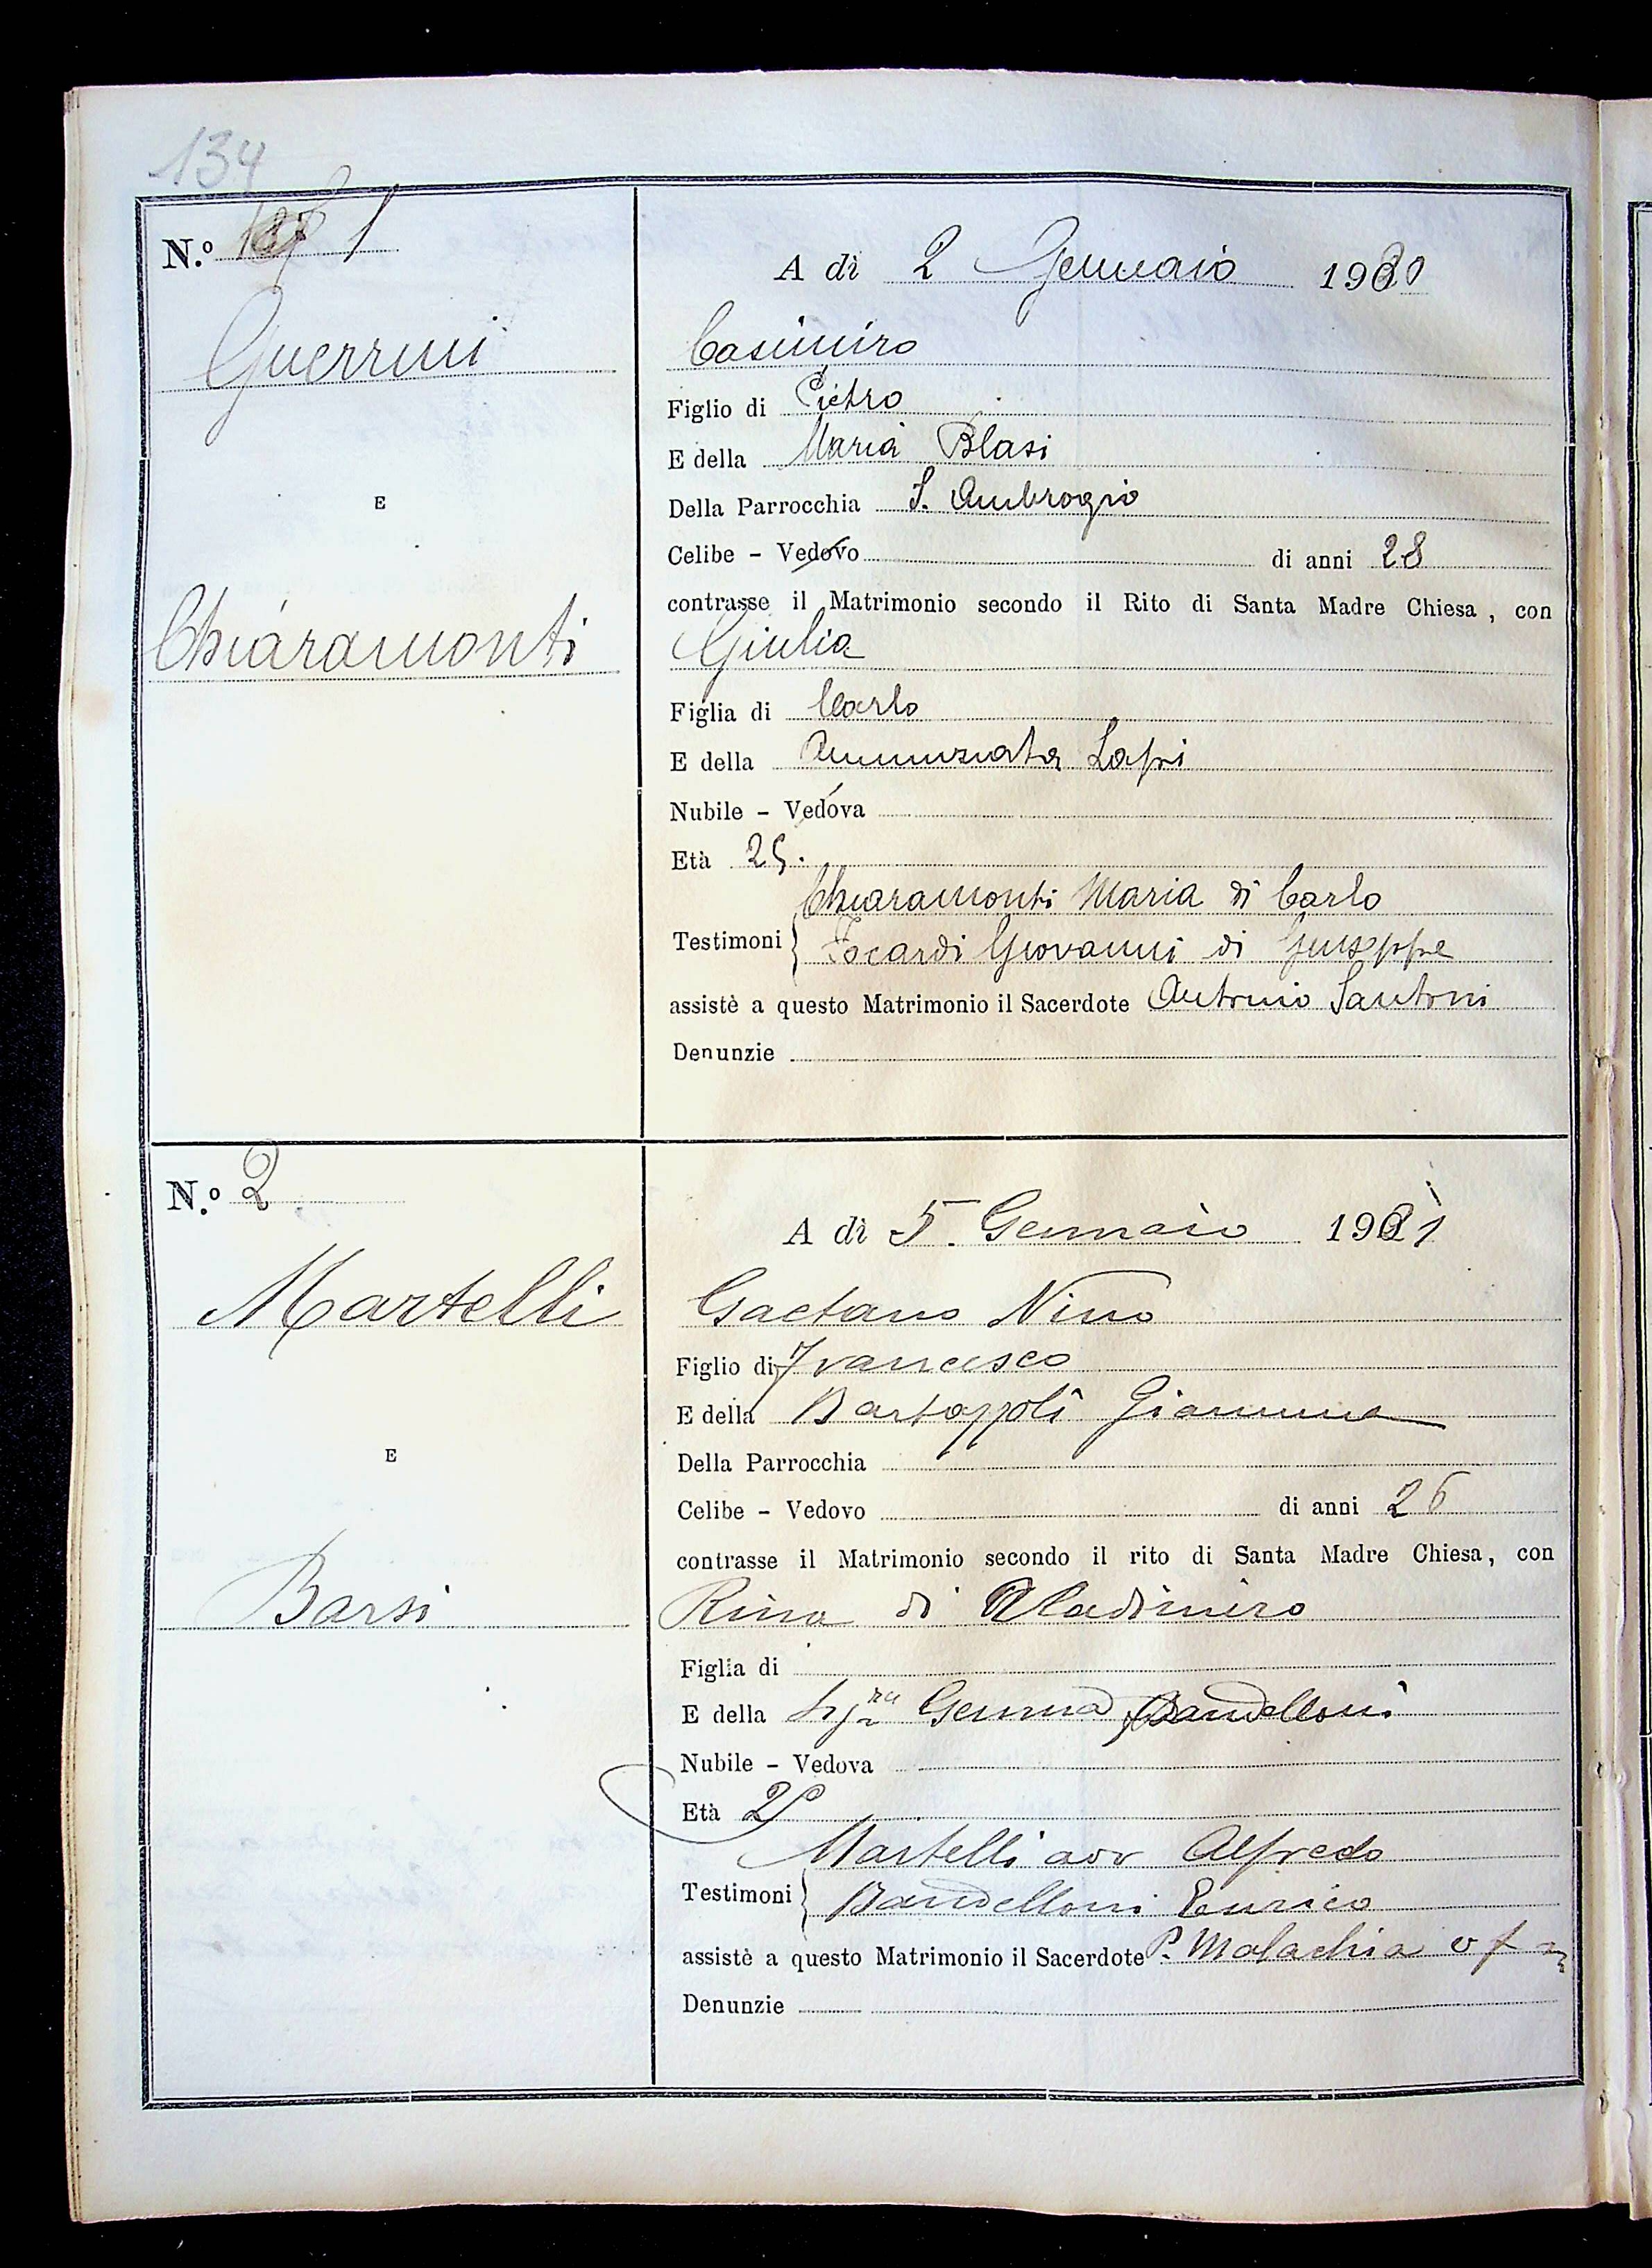 134
N.º 1
A dì 2 Gennaio 19
Guerrini
Casimiro
Figlio di Pietro
E della Maria Blasi
Della Parrocchia S. Ambrogio
E
Celibe - Vedovo di anni 28
contrasse il Matrimonio secondo il Rito di Santa Madre Chiesa, con
Chiaramonti
Giulia
Figlia di Carlo
E della Annunziata Lapi
Nubile - Vedova
Età 25.
Chiaramonti Maria di Carlo
Testimoni { Focardi Giovanni di Giuseppe
assistè a questo Matrimonio il Sacerdote Antonio Santoni
Denunzie
N.º 2
A dì 5. Gennaio 19
Martelli
Gaetano Nino
Figlio di Francesco
E della Bartoppoli Giannina
E
Della Parrocchia
Celibe - Vedovo di anni 26
contrasse il Matrimonio secondo il rito di Santa Madre Chiesa, con
Barsi
Rina di Vladimiro
Figlia di
E della Gemma Bandelloni
Nubile - Vedova
Età
Martelli avv Alfredo
Testimoni { Bandelloni Enrico
assistè a questo Matrimonio il Sacerdote P. Malachia o f m
Denunzie